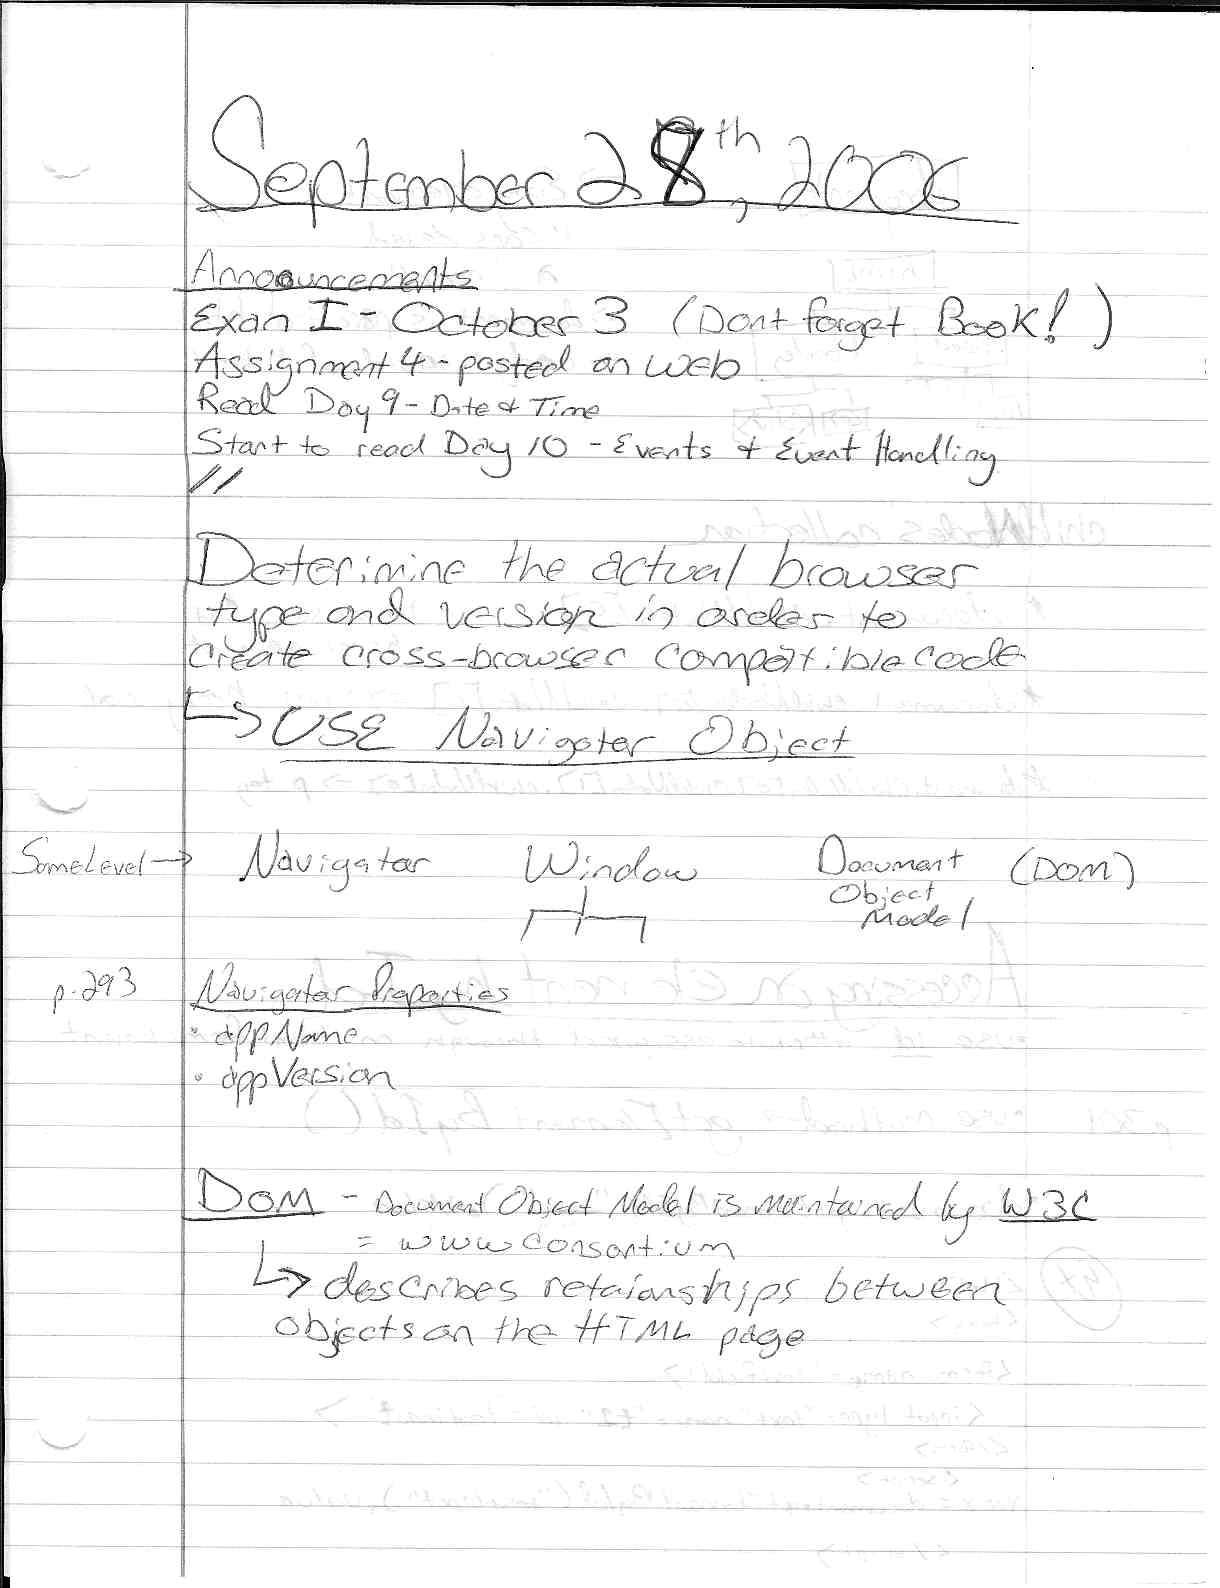 September 28th, 2006
Announcements
Exan I - October 3 (Dont forget Book!)
Assignment 4 - posted on web
Read Day 9 - Date & Time
Start to read Day 10 - Events & Event Handling
//
Deterimine the actual browser
type and version in order to
create cross-browser compatible code
↳ USE Navigator Object
Same Level → Navigator Window Document (DOM)
Object
Model
p.293 Navigator Properties
• appName
• appVersion
DOM - Document Object Model is maintained by W3C
= www consortium
↳ describes retaionships between
objects on the HTML page